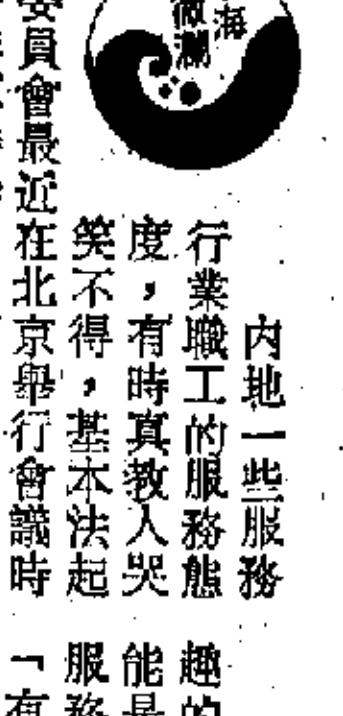 海
微瀾
內地一些服務
行業職工的服務態
度，有時真教人哭
笑不得，基本法起
委員會最近在北京舉行會議時
趣的
能是
服務
「有